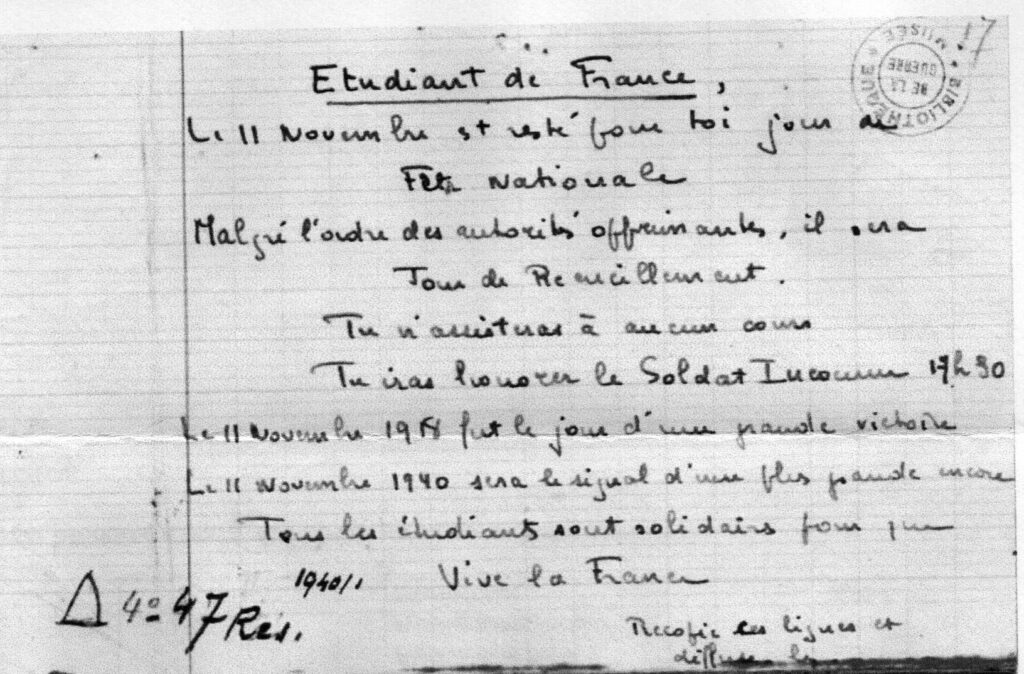 17
BIBLIOTHEQUE * MUSÉE *
DE LA GUERRE
Etudiant de France,
Le 11 Novembre est resté pour toi jour de
Fête Nationale
Malgré l'ordre des autorités opprimantes, il sera
Jour de Recueillement.
Tu n'assisteras à aucun cours
Tu iras honorer le Soldat Inconnu 17h30
Le 11 Novembre 1918 fut le jour d'une grande victoire
Le 11 Novembre 1940 sera le signal d'une plus grande encore
Tous les étudiants sont solidaires pour que
Vive la France
1940/1.
Δ 4º 47 Rés.
Recopie ces lignes et
diffuse les